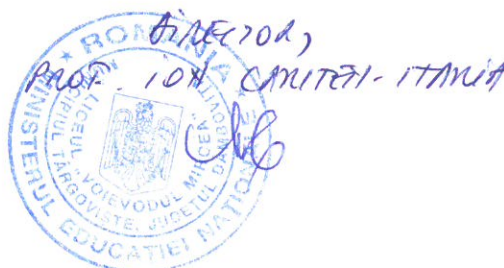 DIRECTOR,
PROF. ION
* ROMÂNIA *
MINISTERUL EDUCAȚIEI NAȚIONALE
LICEUL "VOIEVODUL MIRCEA"
MUNICIPIUL TÂRGOVIȘTE, JUDEȚUL DÂMBOVIȚA